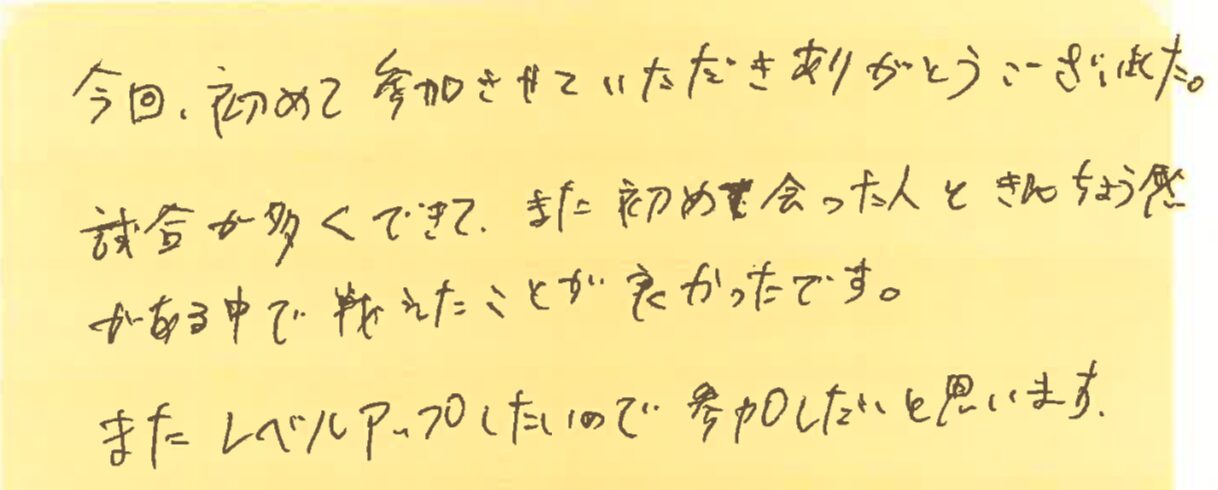 今回、初めて参加させていただきありがとうございました。
試合が多くできて、また初めて会った人ときんちょう感
がある中で戦えたことが良かったです。
またレベルアップしたいので参加したいと思います。